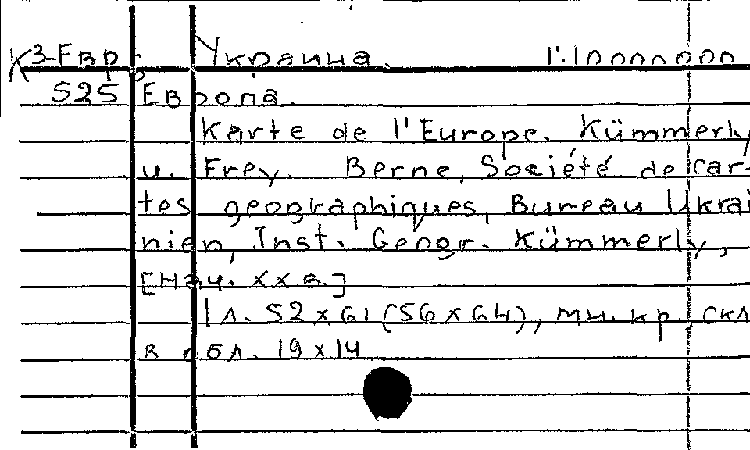 К3-Евр : Украина. 1:10000000
525 Европа.
Karte de l'Europe. Kümmerly
u. Frey. Berne, Société de car-
tes geographiques, Bureau Ukrai
nien, Inst. Geogr. Kümmerly,
[Нач. XX в.]
1 л. 52 x 61 (56 x 64), мн. кр., скл
в обл. 19 x 14